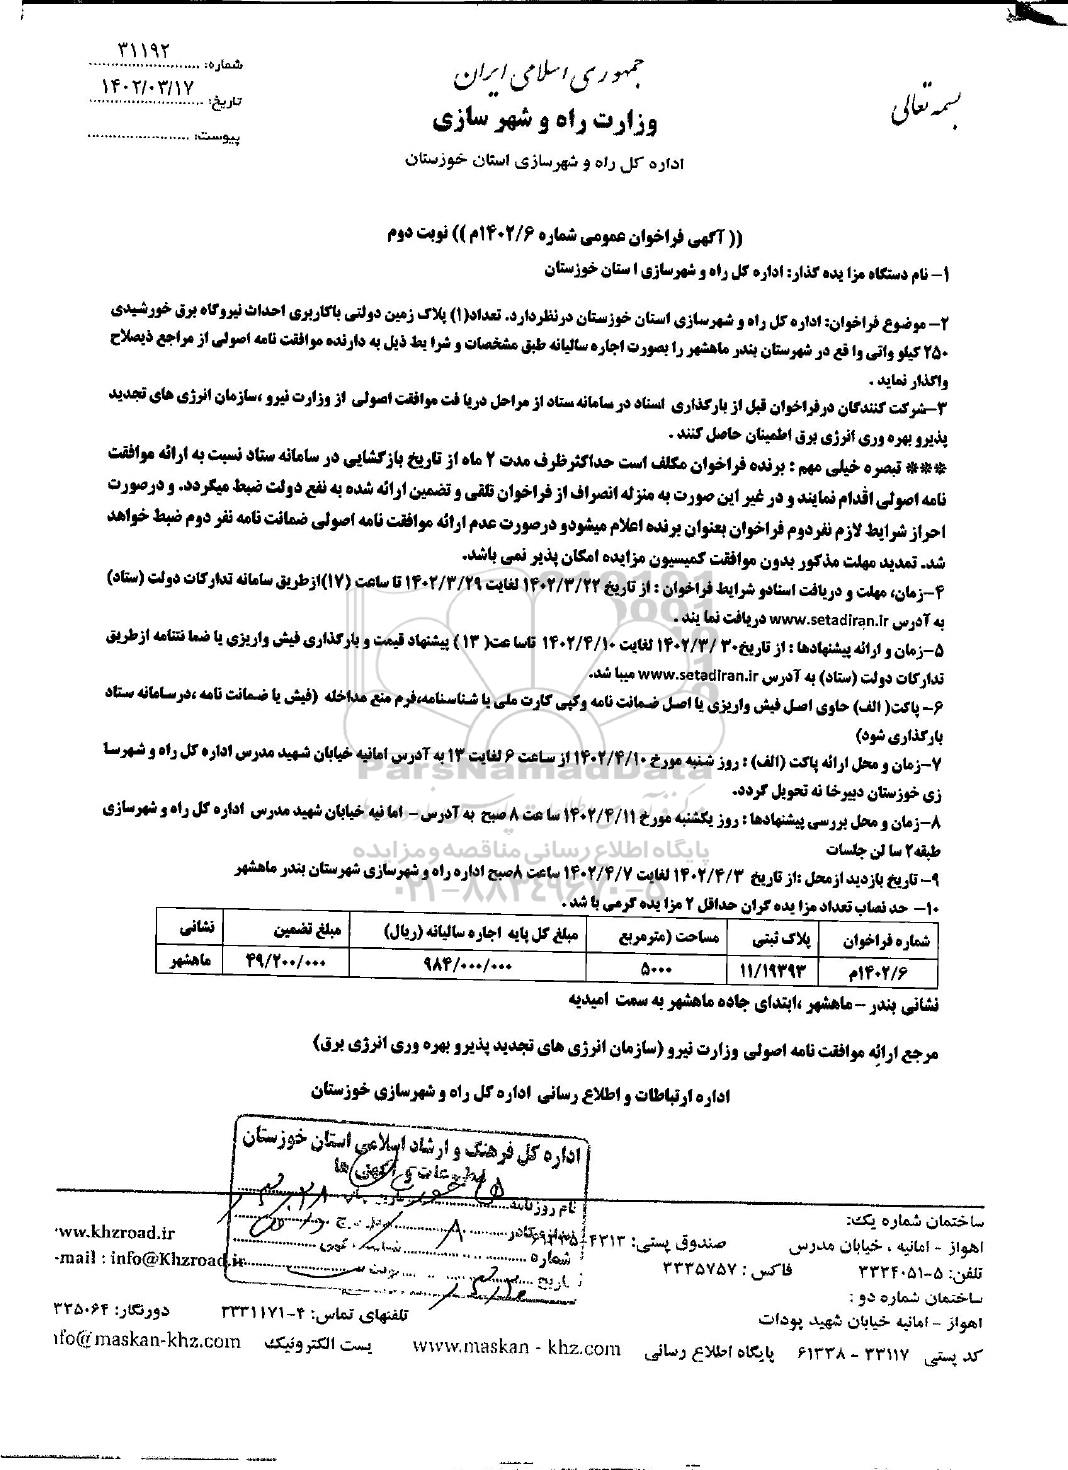 بسمه تعالی
جمهوری اسلامی ایران
وزارت راه و شهر سازی
اداره کل راه و شهرسازی استان خوزستان
شماره: ۳۱۱۹۲
تاریخ: ۱۴۰۲/۰۳/۱۷
پیوست:
(( آگهی فراخوان عمومی شماره ۱۴۰۲/۶م )) نوبت دوم
۱- نام دستگاه مزا یده گذار: اداره کل راه و شهرسازی ا ستان خوزستان
۲- موضوع فراخوان: اداره کل راه و شهرسازی استان خوزستان درنظردارد. تعداد(۱) پلاک زمین دولتی باکاربری احداث نیروگاه برق خورشیدی
۲۵۰ کیلو واتی وا قع در شهرستان بندر ماهشهر را بصورت اجاره سالیانه طبق مشخصات و شرا یط ذیل به دارنده موافقت نامه اصولی از مراجع ذیصلاح
واگذار نماید .
۳-شرکت کنندگان درفراخوان قبل از بارگذاری اسناد در سامانه ستاد از مراحل دریا فت موافقت اصولی از وزارت نیرو ،سازمان انرژی های تجدید
پذیرو بهره وری انرژی برق اطمینان حاصل کنند .
*** تبصره خیلی مهم : برنده فراخوان مکلف است حداکثرظرف مدت ۲ ماه از تاریخ بازگشایی در سامانه ستاد نسبت به ارائه موافقت
نامه اصولی اقدام نمایند و در غیر این صورت به منزله انصراف از فراخوان تلقی و تضمین ارائه شده به نفع دولت ضبط میگردد. و درصورت
احراز شرایط لازم نفردوم فراخوان بعنوان برنده اعلام میشودو درصورت عدم ارائه موافقت نامه اصولی ضمانت نامه نفر دوم ضبط خواهد
شد. تمدید مهلت مذکور بدون موافقت کمیسیون مزایده امکان پذیر نمی باشد.
۴-زمان، مهلت و دریافت اسنادو شرایط فراخوان : از تاریخ ۱۴۰۲/۳/۲۲ لغایت ۱۴۰۲/۳/۲۹ تا ساعت (۱۷)ازطریق سامانه تدارکات دولت (ستاد)
به آدرس www.setadiran.ir دریافت نما یند .
۵-زمان و ارائه پیشنهادها : از تاریخ۳۰ /۱۴۰۲/۳ لغایت ۱۴۰۲/۴/۱۰ تاسا عت( ۱۳ ) پیشنهاد قیمت و بارگذاری فیش واریزی یا ضما نتنامه ازطریق
تدارکات دولت (ستاد) به آدرس www.setadiran.ir میبا شد.
۶- پاکت( الف) حاوی اصل فیش واریزی یا اصل ضمانت نامه وکپی کارت ملی یا شناسنامه،فرم منع مداخله (فیش یا ضمانت نامه ،درسامانه ستاد
بارگذاری شود)
۷-زمان و محل ارائه پاکت (الف) : روز شنبه مورخ ۱۴۰۲/۴/۱۰ از ساعت ۶ لغایت ۱۳ به آدرس امانیه خیابان شهید مدرس اداره کل راه و شهرسا
زی خوزستان دبیرخا نه تحویل گردد.
۸-زمان و محل بررسی پیشنهادها : روز یکشنبه مورخ ۱۴۰۲/۴/۱۱ سا عت ۸ صبح به آدرس- اما نیه خیابان شهید مدرس اداره کل راه و شهرسازی
طبقه۲ سا لن جلسات
۹- تاریخ بازدید ازمحل :از تاریخ ۱۴۰۲/۴/۳ لغایت ۱۴۰۲/۴/۷ ساعت ۸صبح اداره راه و شهرسازی شهرستان بندر ماهشهر
۱۰- حد نصاب تعداد مزا یده گران حداقل ۲ مزا یده گرمی با شد .
شماره فراخوان پلاک ثبتی مساحت (مترمربع مبلغ کل پایه اجاره سالیانه (ریال) مبلغ تضمین نشانی
۱۴۰۲/۶م ۱۱/۱۹۳۹۳ ۵۰۰۰ ۹۸۴/۰۰۰/۰۰۰ ۴۹/۲۰۰/۰۰۰ ماهشهر
نشانی بندر - ماهشهر ،ابتدای جاده ماهشهر به سمت امیدیه
مرجع ارائه موافقت نامه اصولی وزارت نیرو (سازمان انرژی های تجدید پذیرو بهره وری انرژی برق)
اداره ارتباطات و اطلاع رسانی اداره کل راه و شهرسازی خوزستان
ParsNamadData
پایگاه اطلاع رسانی مناقصه و مزایده
۰۲۱-۸۸۳۴۹۶۷۰-۵
اداره کل فرهنگ و ارشاد اسلامی استان خوزستان
مطبوعات و آگهی ها
نام روزنامه
شماره
تاریخ
ساختمان شماره یک:
اهواز - امانیه ، خیابان مدرس صندوق پستی: ۴۳۱۳- www.khzroad.ir
تلفن: ۵-۳۳۳۴۰۵۱ فاکس : ۳۳۳۵۷۵۷ -mail : info@Khzroad.ir
ساختمان شماره دو :
اهواز - امانیه خیابان شهید پودات تلفنهای تماس: ۴-۳۳۳۱۱۷۱ دورنگار: ۳۳۵۰۶۴
کد پستی ۳۳۱۱۷ - ۶۱۳۳۸ پایگاه اطلاع رسانی www.maskan - khz.com پست الکترونیک nfo@maskan-khz.com